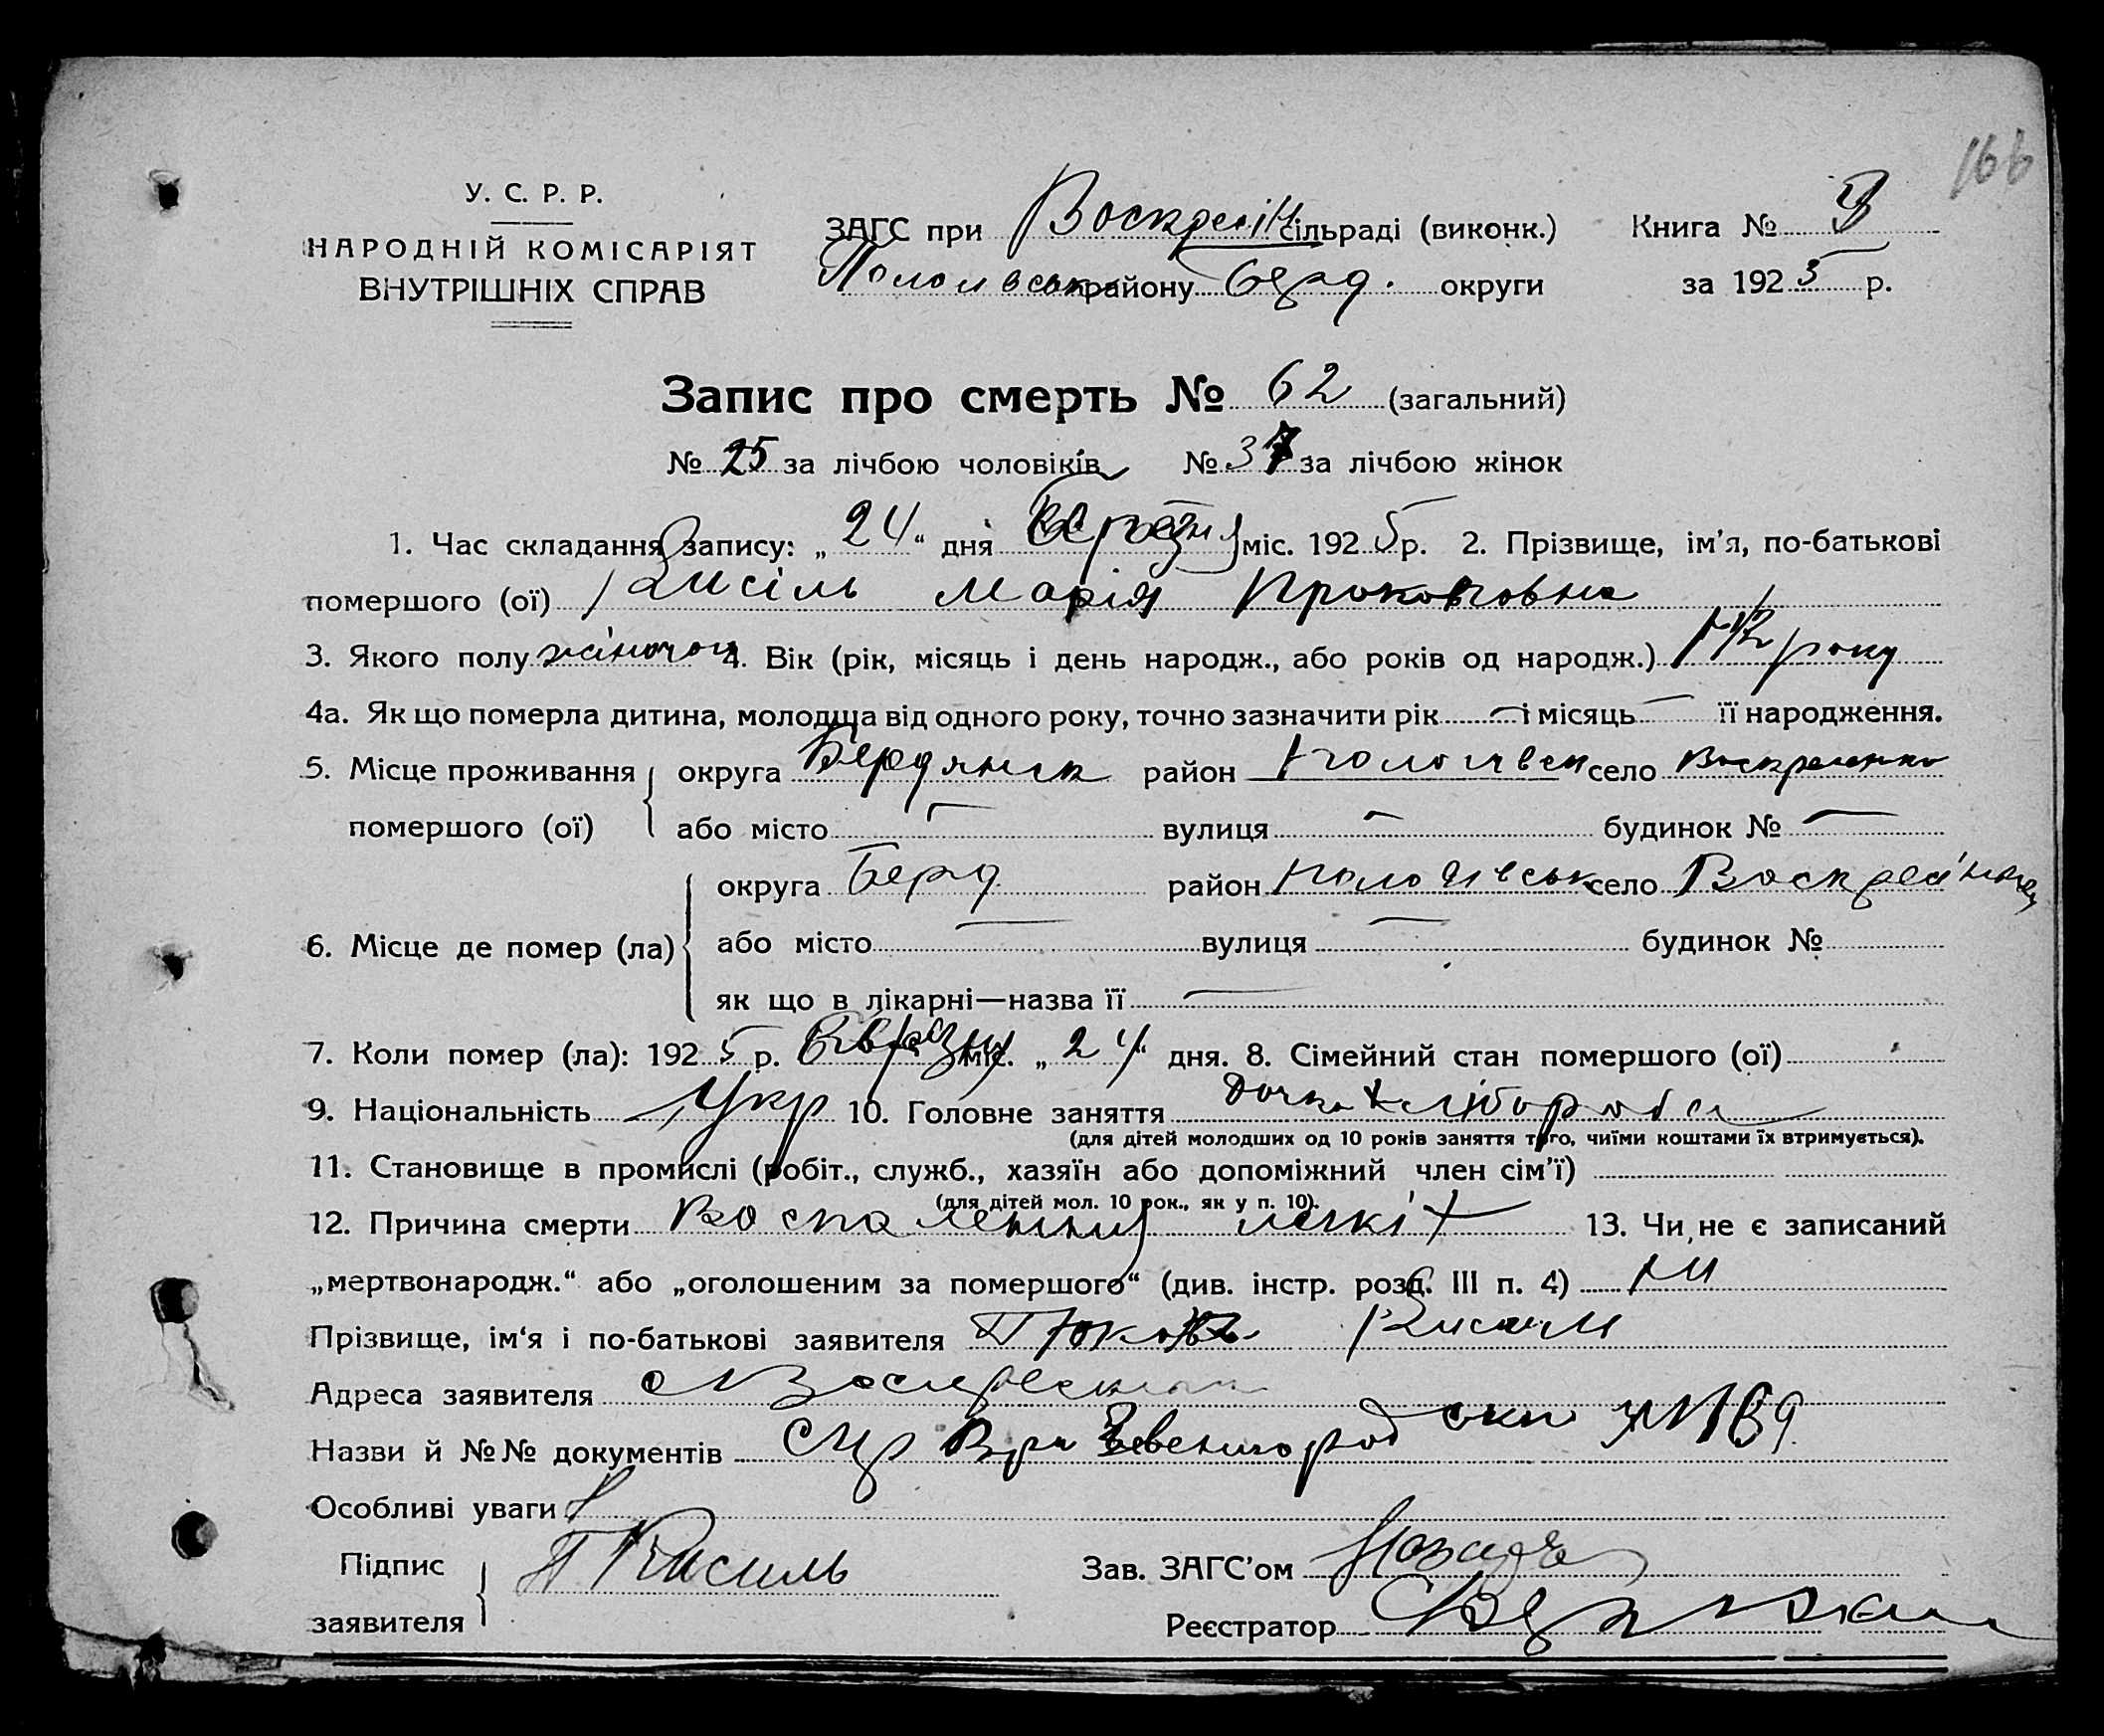 166
У. С. Р. Р.
НАРОДНІЙ КОМІСАРІЯТ
ВНУТРІШНІХ СПРАВ
ЗАГС при Воскресін сільраді (виконк.) Книга №
району Берд. округи за 1925 р.
Запис про смерть № 62 (загальний)
№ 25 за лічбою чоловіків № 37 за лічбою жінок
1. Час складання запису: „24“ дня міс. 1925 р. 2. Прізвище, ім’я, по-батькові
помершого (ої) Кисіль Марія Прокоповна
3. Якого полу жіночого 4. Вік (рік, місяць і день народж., або років од народж.) 1 1/2 року
4а. Як що померла дитина, молодша від одного року, точно зазначити рік — і місяць — її народження.
5. Місце проживання округа Бердянськ район Пологівськ село Воскресенка
помершого (ої) або місто — вулиця — будинок № —
округа Берд район Пологівськ село Воскресінка
6. Місце де помер (ла) або місто — вулиця — будинок №
як що в лікарні—назва її —
7. Коли помер (ла): 1925 р. міс. „24“ дня. 8. Сімейний стан помершого (ої)
9. Національність Укр 10. Головне заняття Дочка хлібороба
(для дітей молодших од 10 років заняття того, чиїми коштами їх втримується).
11. Становище в промислі (робіт., служб., хазяїн або допоміжний член сім’ї)
(для дітей мол. 10 рок., як у п. 10).
12. Причина смерти Воспаленния легкіх 13. Чи не є записаний
„мертвонародж.“ або „оголошеним за помершого“ (див. інстр. розд. III п. 4) Ні
Прізвище, ім‘я і по-батькові заявителя Прокоп Кисіль
Адреса заявителя с Воскресенка
Назви й №№ документів
Особливі уваги
Підпис П Кисиль Зав. ЗАГС’ом
заявителя Реєстратор